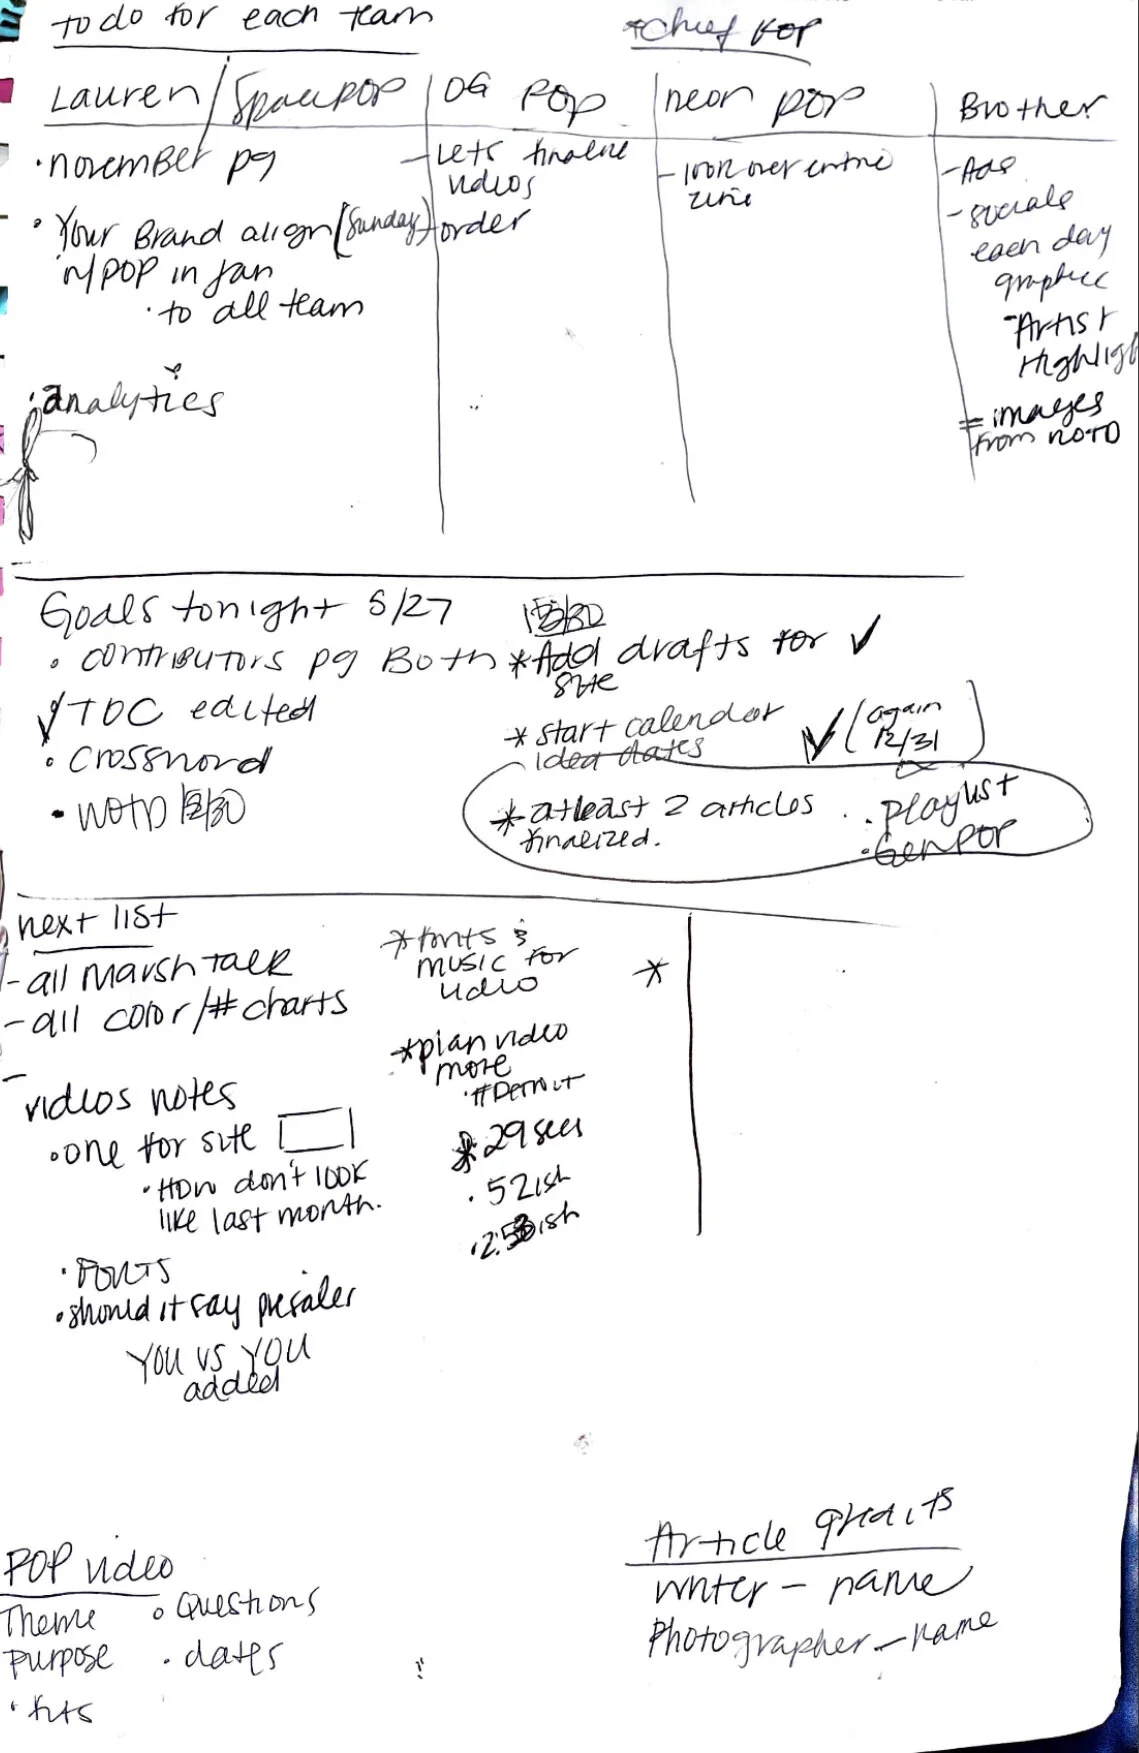 to do for each team
*Chief POP
Lauren / SpacePOP
OG POP
neon POP
Brother
• november pg
• Your Brand align (Sunday)
w/ POP in Jan
• to all team
• analytics
- Lets finalize
videos
- order
- look over entire
zine
- Ads
- socials
each day
graphic
- Artist
Highlight
= images
from NOTD
Goals tonight 5/27
• contributors pg Both
✓ TOC edited
• Crossword
• NOTD
* Add drafts for ✓
site
* start calendar
idea dates
✓ (again
12/31)
* atleast 2 articles
finalized.
• playlist
• GenPOP
next list
- all Marsh talk
- all color/# charts
-
videos notes
• one for site
• How don't look
like last month.
• FONTS
• should it say presaler
YOU vs YOU
added
* fonts &
music for
video
* plan video
more
* 29 secs
• 52ish
*
POP video
Theme
purpose
• fits
• Questions
• dates
Article credits
writer - name
Photographer - name